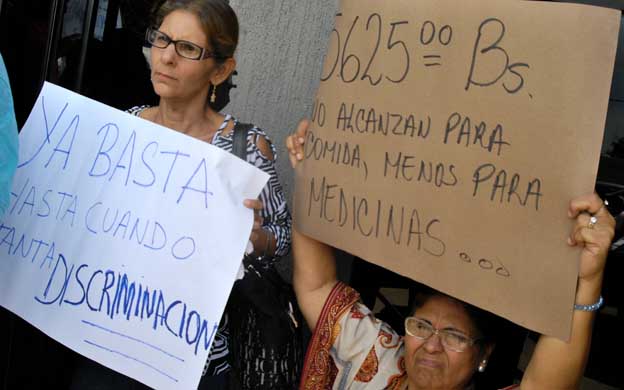 YA BASTA
HASTA CUANDO
TANTA
DISCRIMINACION
5625.⁰⁰ = Bs.
NO ALCANZAN PARA
COMIDA, MENOS PARA
MEDICINAS...